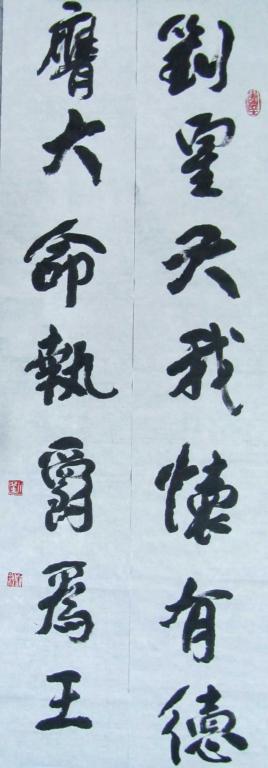 劉皇天我懷有德
膺大命執爵為王